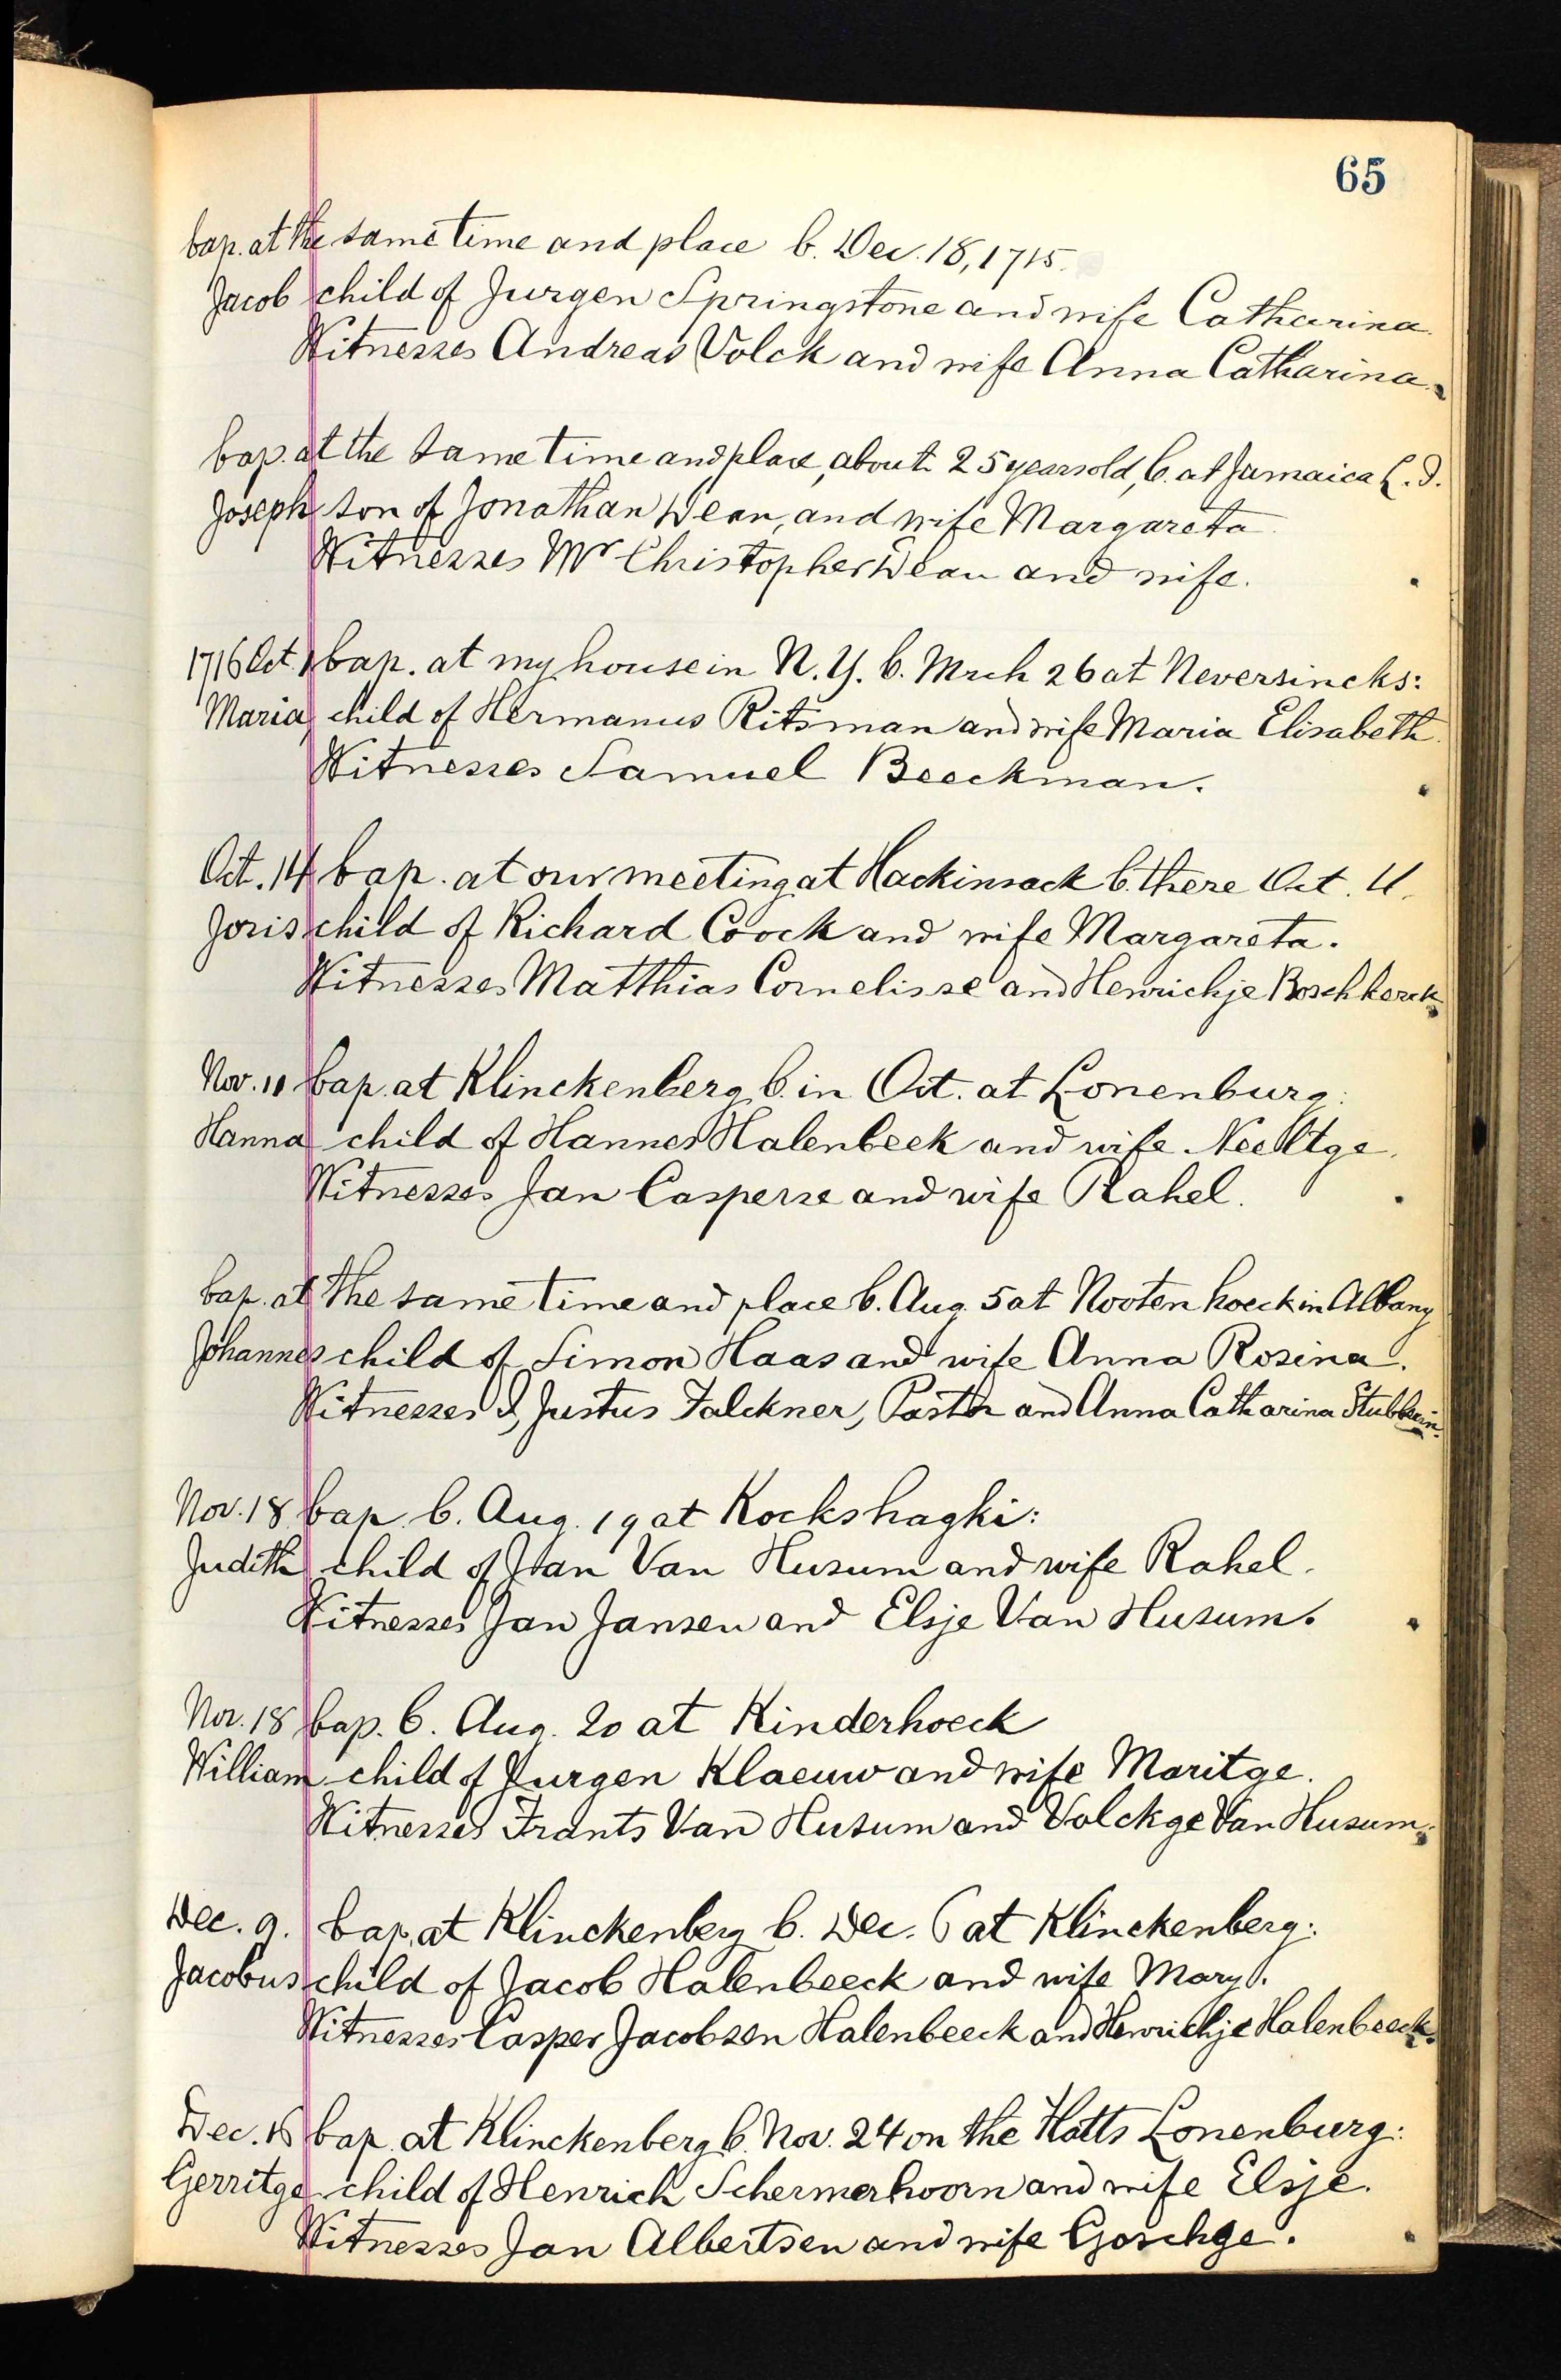 65
bap. at the same time and place b. Dec. 18, 1715.
Jacob child of Jurgen Springstone and wife Catharina.
Witnesses Andreas Volck and wife Anna Catharina.
bap. at the same time and place, about 25 years old, b. at Jamaica L. I.
Joseph son of Jonathan Dean, and wife Margareta.
Witnesses Mr Christopher Dean and wife.
1716 Oct. 1 bap. at my house in N. Y. b. Mrch 26 at Neversincks:
Maria, child of Hermanus Ritsman and wife Maria Elisabeth.
Witnesses Samuel Beeckman.
Oct. 14 bap. at our meeting at Hackinsack b. there Oct.
Joris child of Richard Coock and wife Margareta.
Witnesses Matthias Cornelisse and Henrichje Boschkerck.
Nov. 11 bap. at Klinckenberg b. in Oct. at Lonenburg:
Hanna child of Hannes Halenbeek and wife Neeltge.
Witnesses Jan Casperse and wife Rahel.
bap. at the same time and place b. Aug. 5 at Nooten hoeck in Albany
Johannes child of Simon Haas and wife Anna Rosina.
Witnesses I, Justus Falckner, Pastor and Anna Catharina
Nov. 18 bap. b. Aug. 19 at Kockshaghi:
Judith child of Jan Van Husum and wife Rahel.
Witnesses Jan Jansen and Elsje Van Husum.
Nov. 18 bap. b. Aug. 20 at Kinderhoeck
William child of Jurgen Klaeuw and wife Maritge.
Witnesses Frants Van Husum and Volckge Van Husum.
Dec. 9. bap. at Klinckenberg b. Dec. 6 at Klinckenberg:
Jacobus child of Jacob Halenbeeck and wife Mary.
Witnesses Casper Jacobsen Halenbeeck and Henrichje Halenbeeck.
Dec. 16 bap. at Klinckenberg b. Nov. 24 on the Flatts Lonenburg:
Gerritge child of Henrich Schermerhoorn and wife Elsje.
Witnesses Jan Albertsen and wife Goschge.